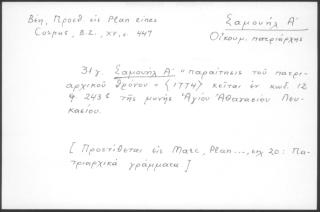 Βέη, Προσθ. εἰς Plan eines
Corpus, B.Z., XV, σ. 447
Σαμουήλ Α´
Οἰκουμ. πατριάρχης
31γ. Σαμουήλ Α´ "παραίτησις τοῦ πατρι-
αρχικοῦ θρόνου" (1774) κεῖται ἐν κώδ. 12
φ. 243 τῆς μονῆς Ἁγίου Ἀθανασίου Λευ-
κασίου.
[Προστίθεται εἰς Marc, Plan..., 20: Πα-
τριαρχικὰ γράμματα]